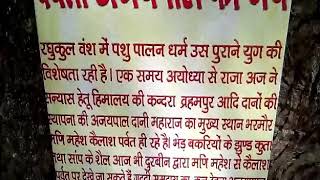 रघुकुल वंश में पशु पालन धर्म उस पुराने युग की
विशेषता रही है। एक समय अयोध्या से राजा अज ने
सन्यास हेतू हिमालय की कन्दरा व्रहमपुर आदि दानों की
स्थापना की अजयपाल दानी महाराज का मुख्य स्थान भरमौर
मणि महेश कैलाश पर्वत ही रहे है। भेड़ बकरियों के झुण्ड कुता
तथा सांप के शैल आज भी दुरबीन द्वारा मणि महेश से कैलाश
पर्वत पर देखे जा सकते हैं